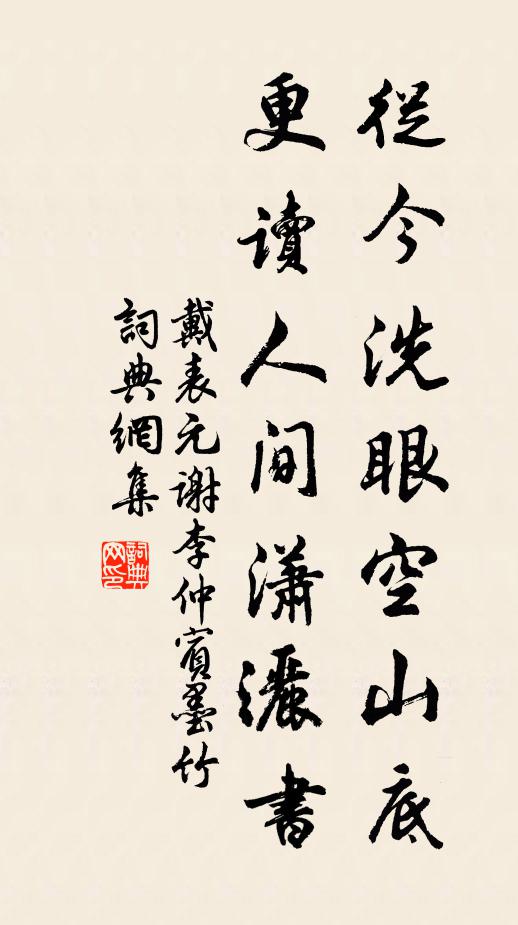 從今洗眼空山底
更讀人間瀟灑書
戴表元謝李仲賓墨竹
詞典網集
詞典网印